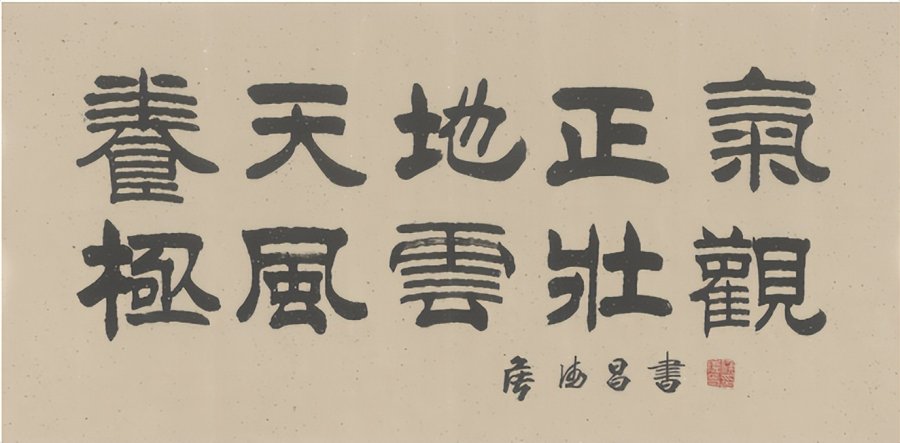 養天地正氣
極風雲壯觀
昌書